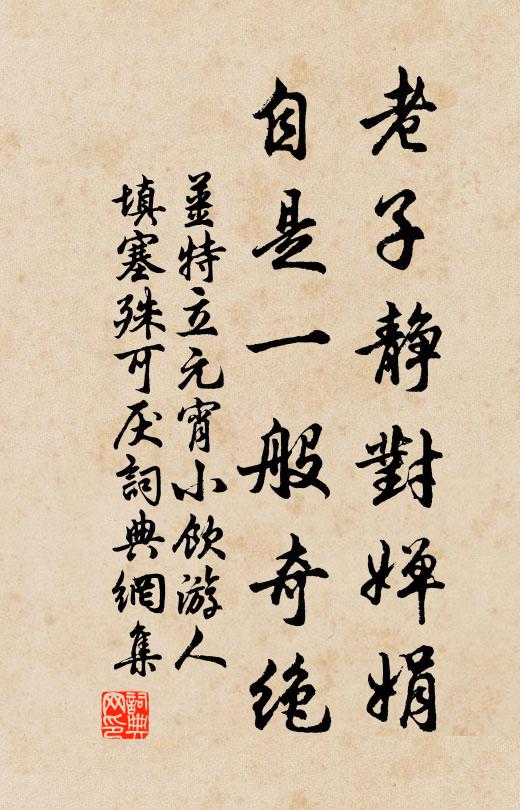 老子静對婵娟
自是一般奇绝
薑特立元宵小飲游人
填塞殊可厌詞典網集
詞典
网印